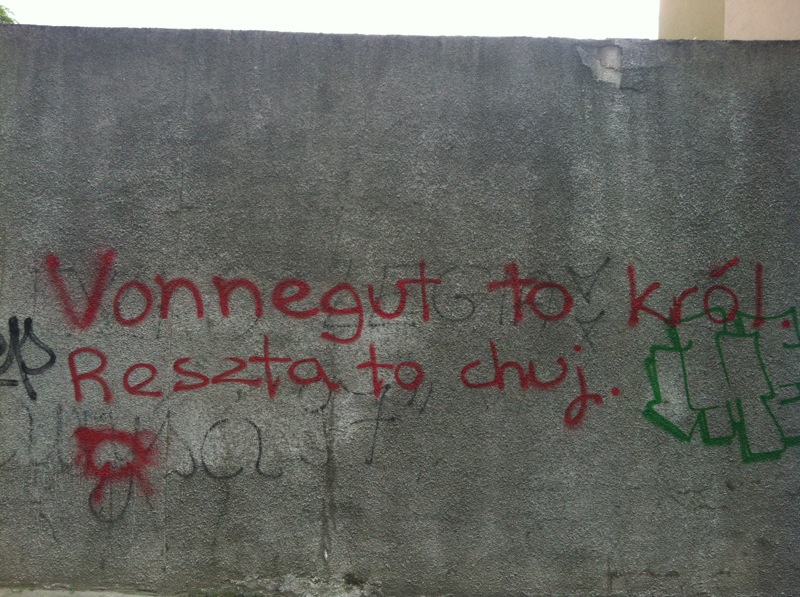 Vonnegut to król.
Reszta to chuj.